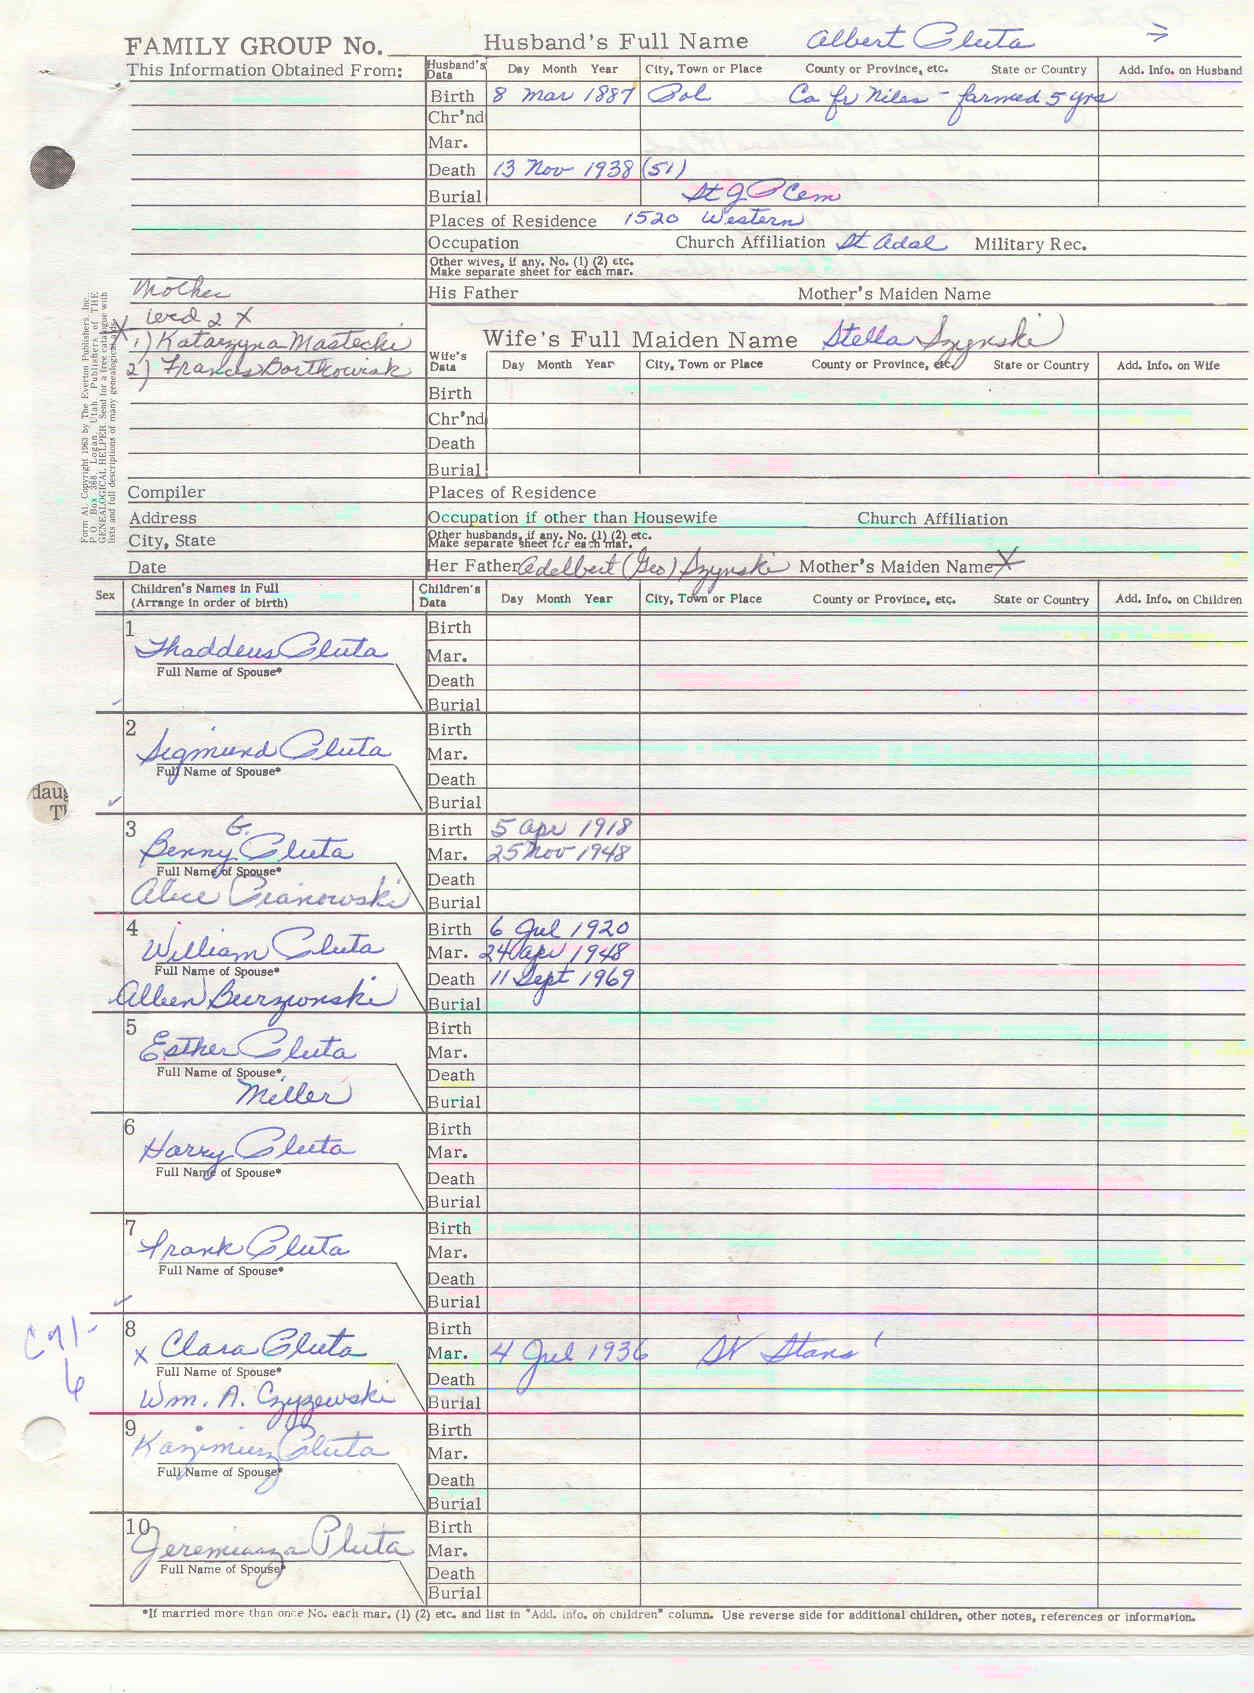 FAMILY GROUP No.
Husband's Full Name Albert Pluta
This Information Obtained From:
Husband's Data Day Month Year City, Town or Place County or Province, etc. State or Country Add. Info. on Husband
Birth 8 Mar 1887 Pol Ca fr Niles - farmed 5 yrs
Chr'nd
Mar.
Death 13 Nov 1938 (51)
Burial St J P Cem
Places of Residence 1520 Western
Occupation Church Affiliation St Adal Military Rec.
Other wives, if any. No. (1) (2) etc.
Make separate sheet for each mar.
His Father Mother's Maiden Name
Mother
wed 2 X
X 1) Katarzyna Mastecki
2) Francis Bartkowiak
Form A1. Copyright 1963 by The Everton Publishers, Inc.,
P.O. Box 368, Logan, Utah. Publishers of THE
GENEALOGICAL HELPER. Send for a free catalogue with
lists and full descriptions of many genealogical aids.
Wife's Full Maiden Name Stella Szynski
Wife's Data Day Month Year City, Town or Place County or Province, etc. State or Country Add. Info. on Wife
Birth
Chr'nd
Death
Burial
Compiler Places of Residence
Address Occupation if other than Housewife Church Affiliation
City, State Other husbands, if any. No. (1) (2) etc.
Make separate sheet for each mar.
Date Her Father Adelbert (Geo) Szynski Mother's Maiden Name X
Sex Children's Names in Full
(Arrange in order of birth) Children's Data Day Month Year City, Town or Place County or Province, etc. State or Country Add. Info. on Children
1 Birth
Thaddeus Pluta Mar.
Full Name of Spouse* Death
Burial
2 Birth
Sigmund Pluta Mar.
Full Name of Spouse* Death
Burial
daug
T
3 G. Birth 5 Apr 1918
Benny Pluta Mar. 25 Nov 1948
Full Name of Spouse* Death
Alice Pianowski Burial
4 Birth 6 Jul 1920
William Pluta Mar. 24 Apr 1948
Full Name of Spouse* Death 11 Sept 1969
Burial
5 Birth
Esther Pluta Mar.
Full Name of Spouse* Death
Miller Burial
6 Birth
Harry Pluta Mar.
Full Name of Spouse* Death
Burial
7 Birth
Frank Pluta Mar.
Full Name of Spouse* Death
Burial
8 Birth
X Clara Pluta Mar. 4 Jul 1936 St Stans'
Full Name of Spouse* Death
Wm. A. Czyzewski Burial
9 Birth
Kazimierz Pluta Mar.
Full Name of Spouse* Death
Burial
10 Birth
Pluta Mar.
Full Name of Spouse* Death
Burial
*If married more than once No. each mar. (1) (2) etc. and list in "Add. info. on children" column. Use reverse side for additional children, other notes, references or information.